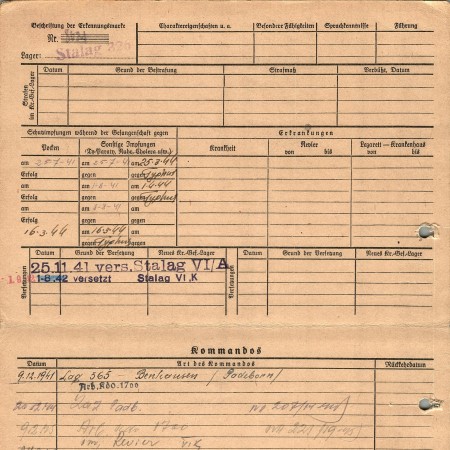 Beschriftung der Erkennungsmarke
Nr.
Lager: Stalag 326
Charaktereigenschaften u. a.
Besondere Fähigkeiten
Sprachkenntnisse
Führung
Strafen im Kr.-Gef.-Lager
Datum
Grund der Bestrafung
Strafmaß
Verbüßt, Datum
Schutzimpfungen während der Gefangenschaft gegen
Erkrankungen
Pocken
Sonstige Impfungen
(Ty-Paraty, Ruhr, Cholera usw.)
Krankheit
Revier
von bis
Lazarett — Krankenhaus
von bis
am 25.7.41 am 25.7.41 am 25.3.44
Erfolg gegen gegen Typhus
am am 1.8.41 am 1.4.44
Erfolg gegen gegen Typhus
am am 8.8.41 am
Erfolg gegen gegen
16.3.44 am 16.3.44 am
gegen Typhus gegen
Versetzungen
Datum Grund der Versetzung Neues Kr.-Gef.-Lager
25.11.41 vers. Stalag VI/A
1-8.42 versetzt Stalag VI.K
Versetzungen
Datum Grund der Versetzung Neues Kr.-Gef.-Lager
Kommandos
Datum Art des Kommandos Rückkehrdatum
9.12.1941 Lag 565 - Benhausen (Paderborn)
Arb. Kdo. 1700
Laz Padb.
Revier